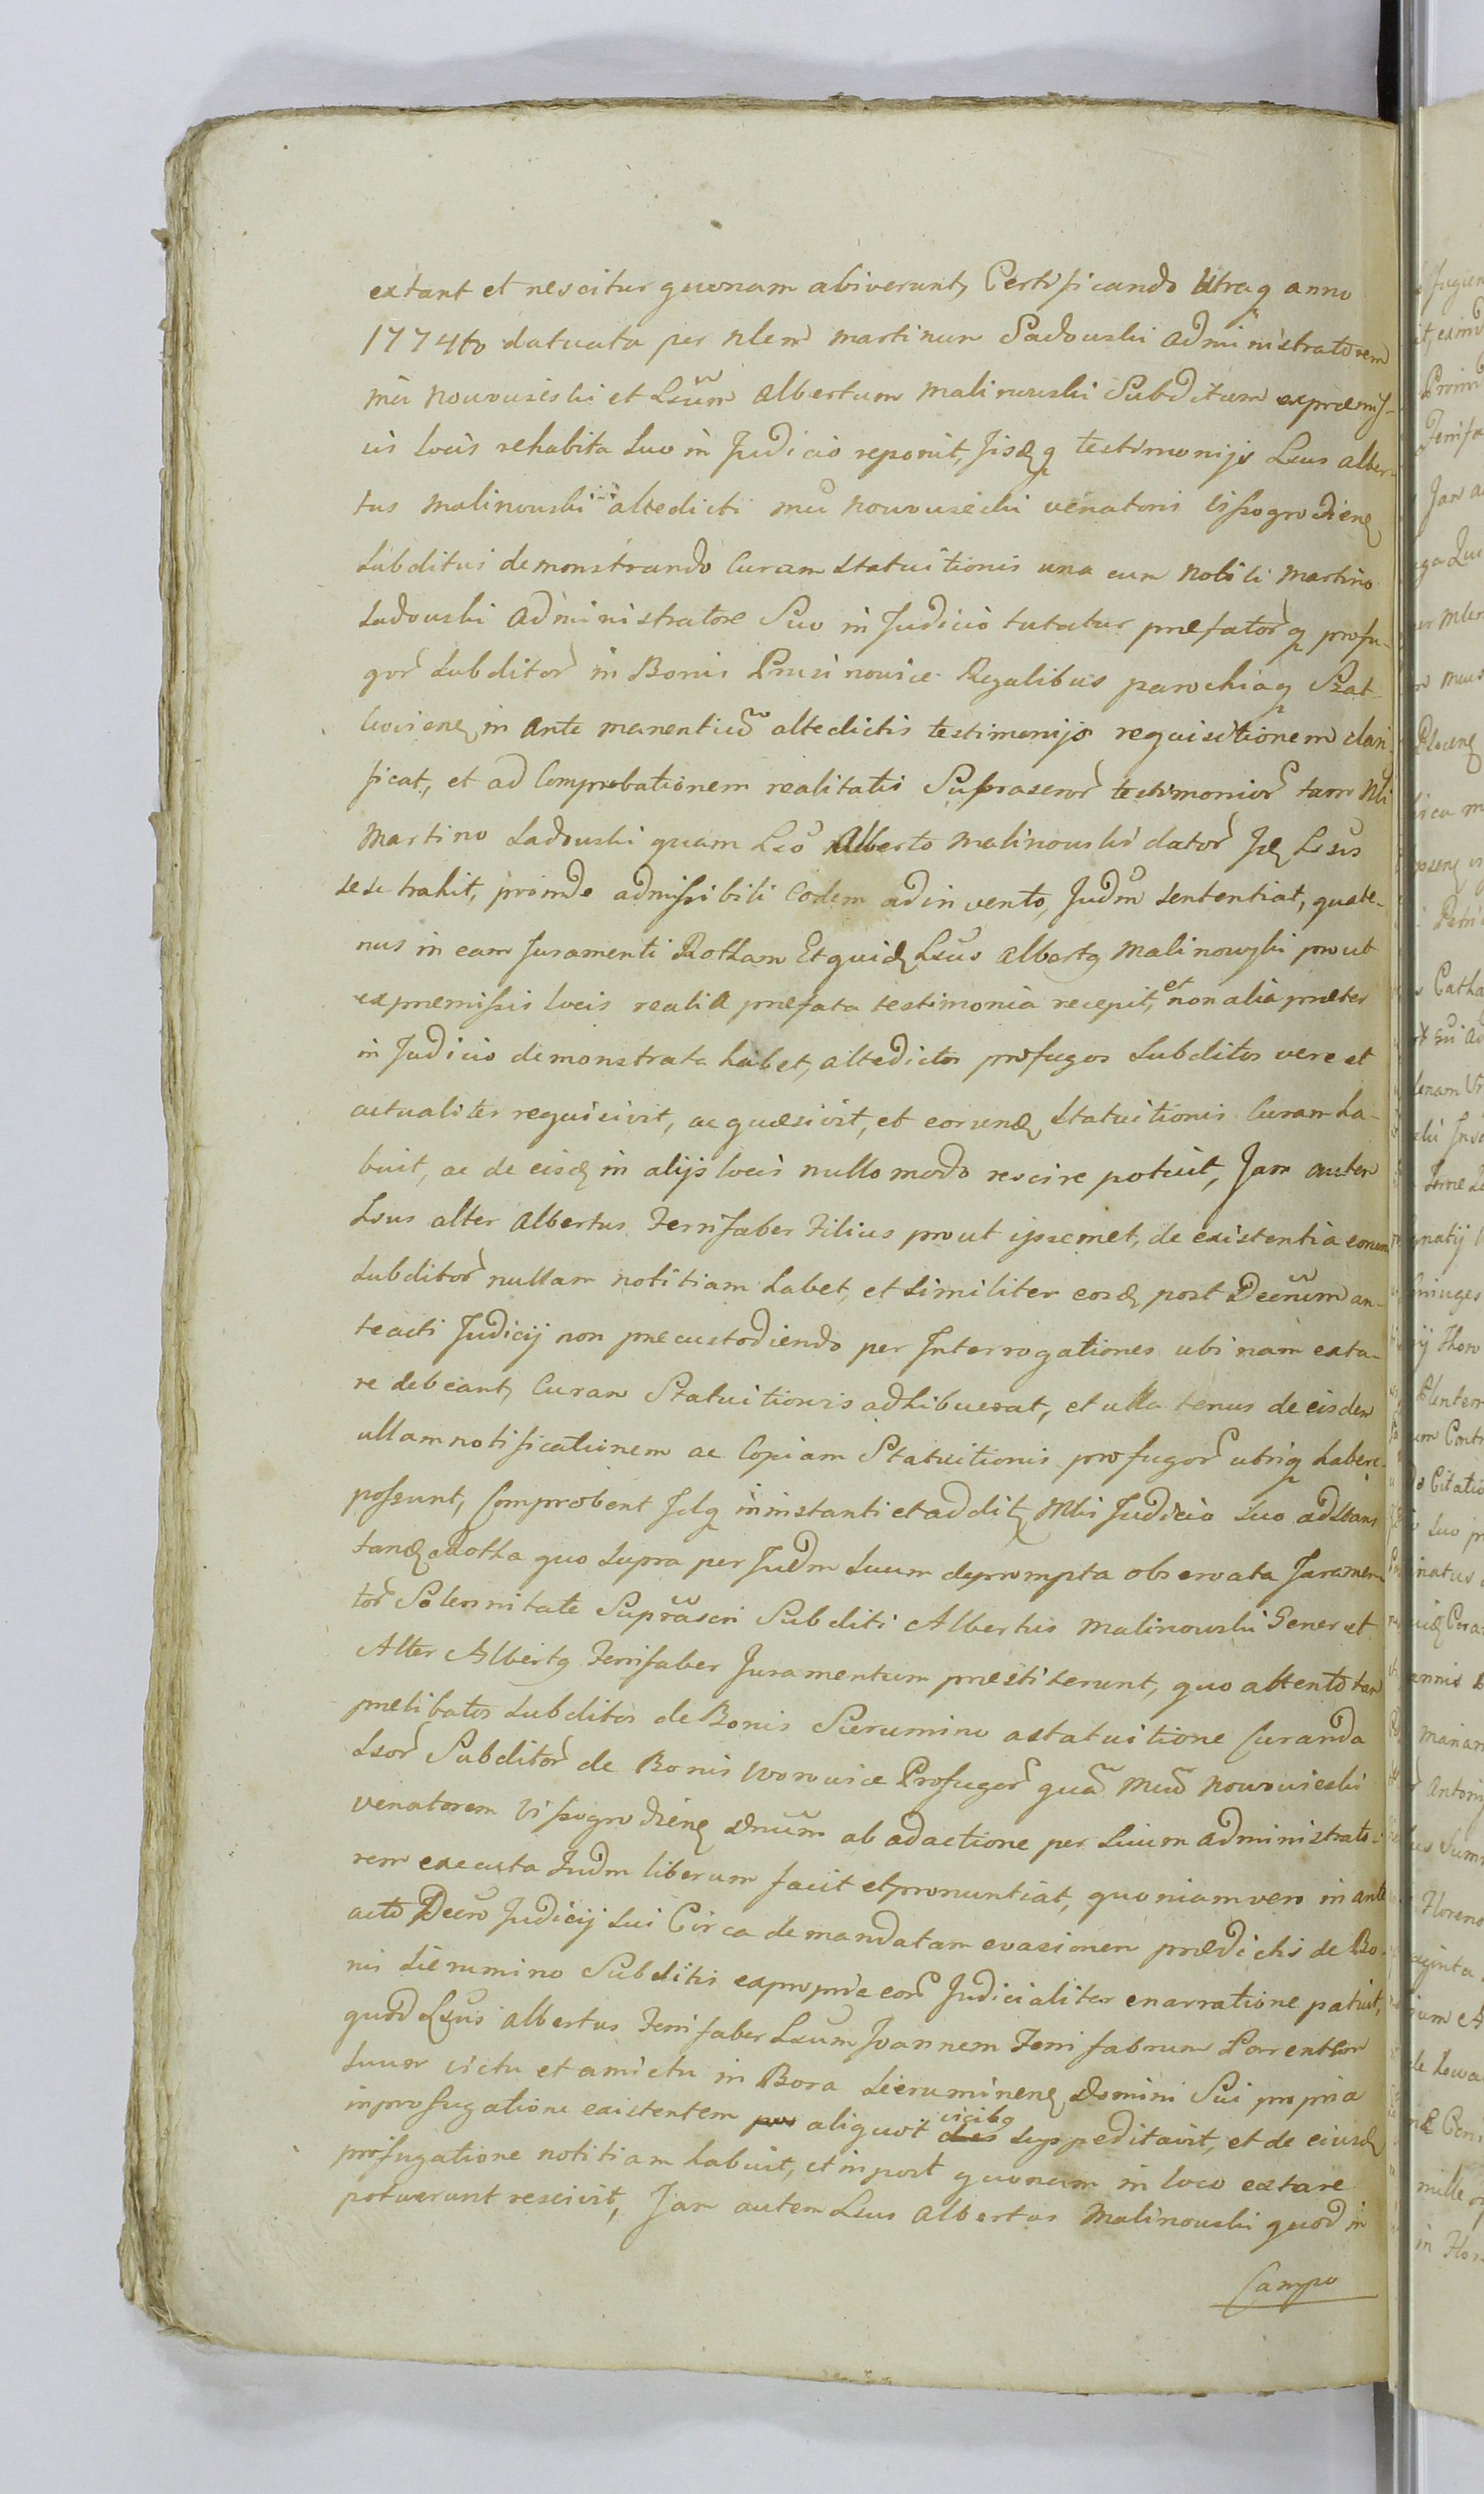 extant et nescitur quonam abiverunt, Certificando Utraq anno
1774to datuata per nlem martinum Sadowski administratorem
mei nowowieski et Lsum albertum malinowski Subditum expraemis-
sis locis rehabita suo in Judicio reponit, Jisdq testimonijs Lsus alber-
tus malinowski altedicti mci nowowieski venatoris vissogrodiens
subditus demonstrando Curam statuitionis una cum nobili martino
sadowski administratore Suo in Judicio tutatur praefatorq profu-
gor subditor in Bonis Prusinowice Regalibus parochiaq Szat-
koviens in ante manentium altedictis testimonijs requisitionem clari-
ficat, et ad Comprobationem realitatis Suprascror testimonior tam Nli
Martino sadowski quam Lso Alberto malinowski dator Jps Lsus
sese trahit, proinde admissibili eodem adinvento, Judm sententiat, quate-
nus in eam Juramenti Rotham Et quid Lsus albertq malinowski prout
expraemissis locis realia praefata testimonia recepit, et non alia praeter
in Judicio demonstrata habet, altedictos profugos subditos vere et
actualiter requisivit, ac quaesivit, et eorund statuitionis Curam ha-
buit, ac de eisd in alijs locis nullo modo rescire potuit, Jam autem
Lsus alter albertus ferrifaber Filius prout ipsemet, de existentia eorum
subditor nullam notitiam habet, et similiter eosd post Decrum an-
teacti Judicij non praecustodiendo per Interrogationes ubinam exta-
re debeant, Curam Statuitionis adhibuerat, et ulla tenus de eisdem
ullam notificationem ac Copiam Statuitionis profugor utriq habere
possunt, Comprobent Idq in instanti et addit Mli Judicio suo adstans
tand a Rotha quo supra per Judm suum deprompta observata Juramen-
tor Solennitate Suprascri Subditi Albertus malinowski Gener et
Alter Albertq ferrifaber Juramentum praestiterunt, quo attento tam
praelibatos subditos de Bonis Sierumino a statuitione Curanda
Lsor Subditor de Bonis worowice Profugor qua Mcum nowowieski
venatorem vissogrodiens Dnum ab adactione per Suum administrato-
rem executa Judm liberum facit et pronuntiat, quoniam vero in ante
acto Decro Judicij sui Circa demandatam evasionem praedictis de Bo-
nis sierumino Subditis ex propria eor Judicialiter enarratione patuit,
quod Lsus albertus ferrifaber Lsum Joannem ferrifabrum Parentem
suum victu et amictu in Bora sieruminens Domini Sui propria
in profugatione existentem per aliquot vicibq des suppeditavit, et de eiusd
profugatione notitiam habuit, et in post quonam in loco extare
potuerunt rescivit, Jam autem Lsus albertus Malinowski quod in
Campo